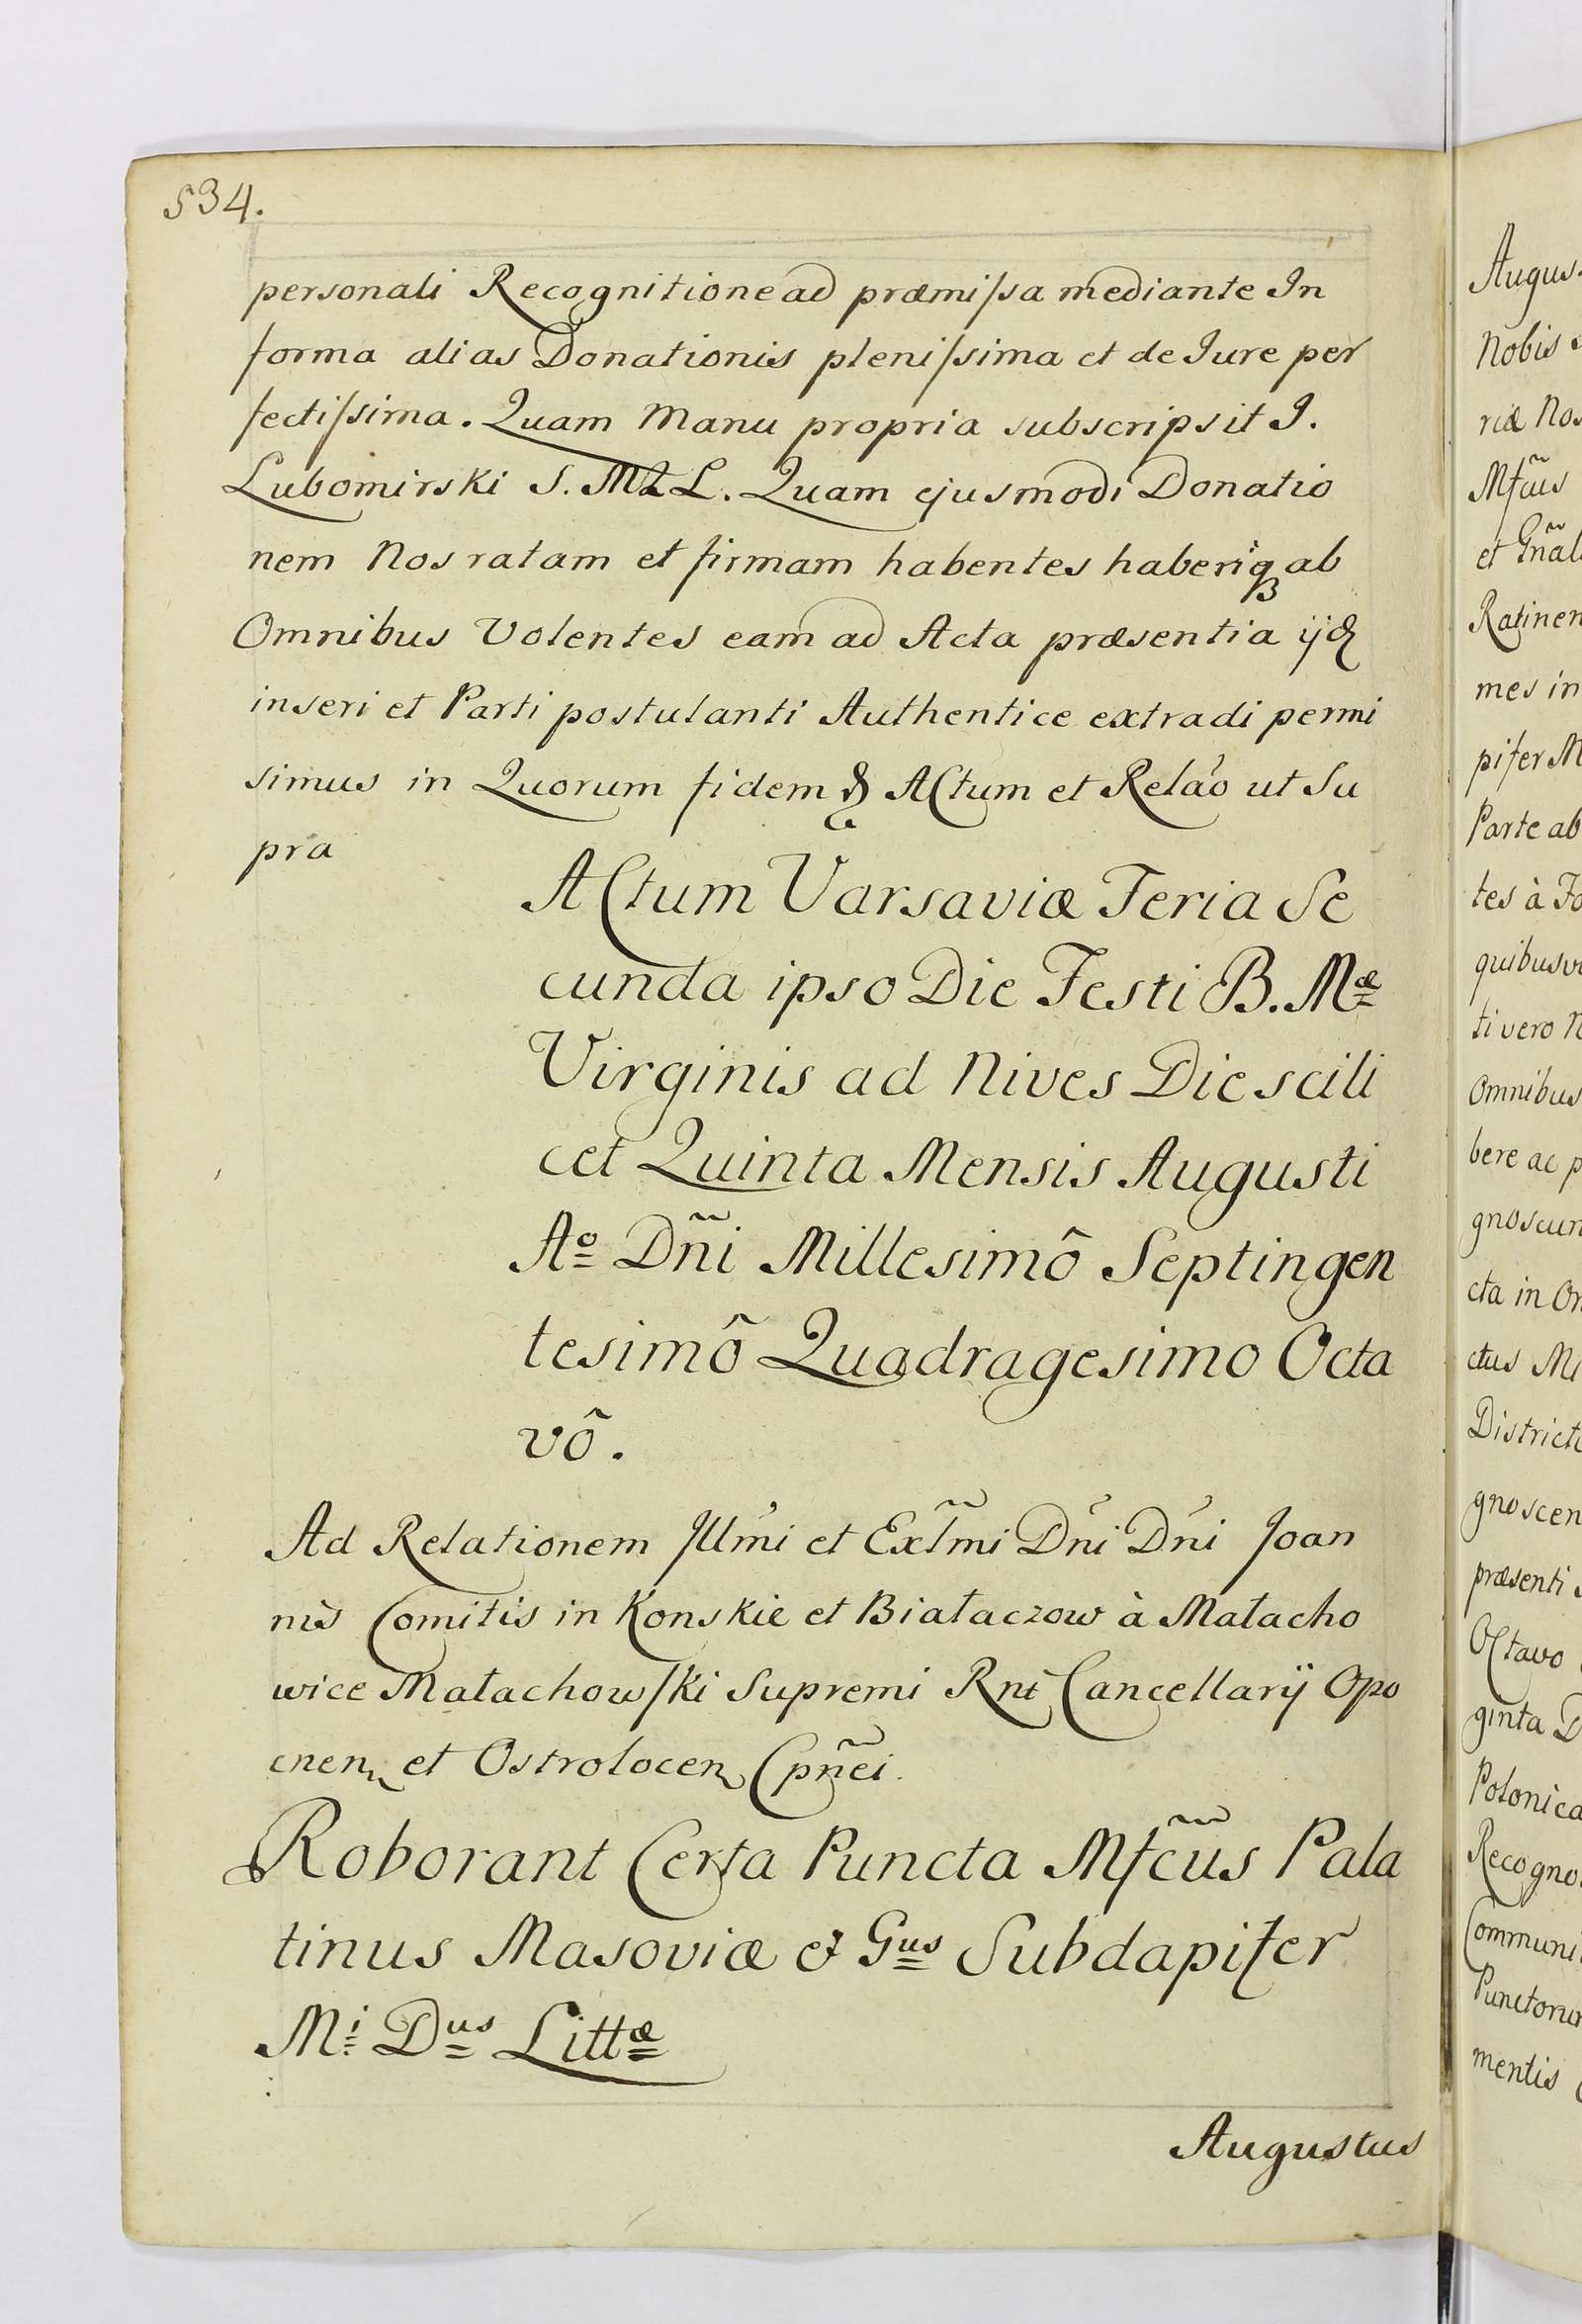 534.
personali Recognitione ad præmissa mediante In
forma alias Donationis plenissima et de Iure per
fectissima. Quam Manu propria subscripsit I.
Lubomirski S. M L. Quam ejusmodi Donatio
nem Nos ratam et firmam habentes haberiq ab
Omnibus Volentes eam ad Acta præsentia
inseri et Parti postulanti Authentice extradi permi
simus in Quorum fidem Actum et Relāo ut Su
pra
Actum Varsaviæ Feria Se
cunda ipso Die Festi B. Mæ
Virginis ad Nives Die scili
cet Quinta Mensis Augusti
Ao Dñi Millesimô Septingen
tesimô Quadragesimo Octa
vô.
Ad Relationem Jllmi et Exlmi Dni Dni Joan
nis Comitis in Konskie et Białaczow à Małacho
wice Małachowski Supremi Rni Cancellarij Opo
cnen et Ostrolocen Cpnei.
Roborant Certa Puncta Mfcus Pala
tinus Masoviæ et Gus Subdapifer
Mi Dus Littæ
Augustus
Augus
Nobis
riæ Nos
Mfcus
et Gñal
Ratinen
mes in
pifer M
Parte ab
tes à Fo
quibusvi
ti vero N
Omnibus
bere ac p
gnoscun
cta in On
ctus Mi
Districtu
gnoscen
præsenti
Octavo
ginta D
Polonica
Recogno
Communi
Punctorum
mentis